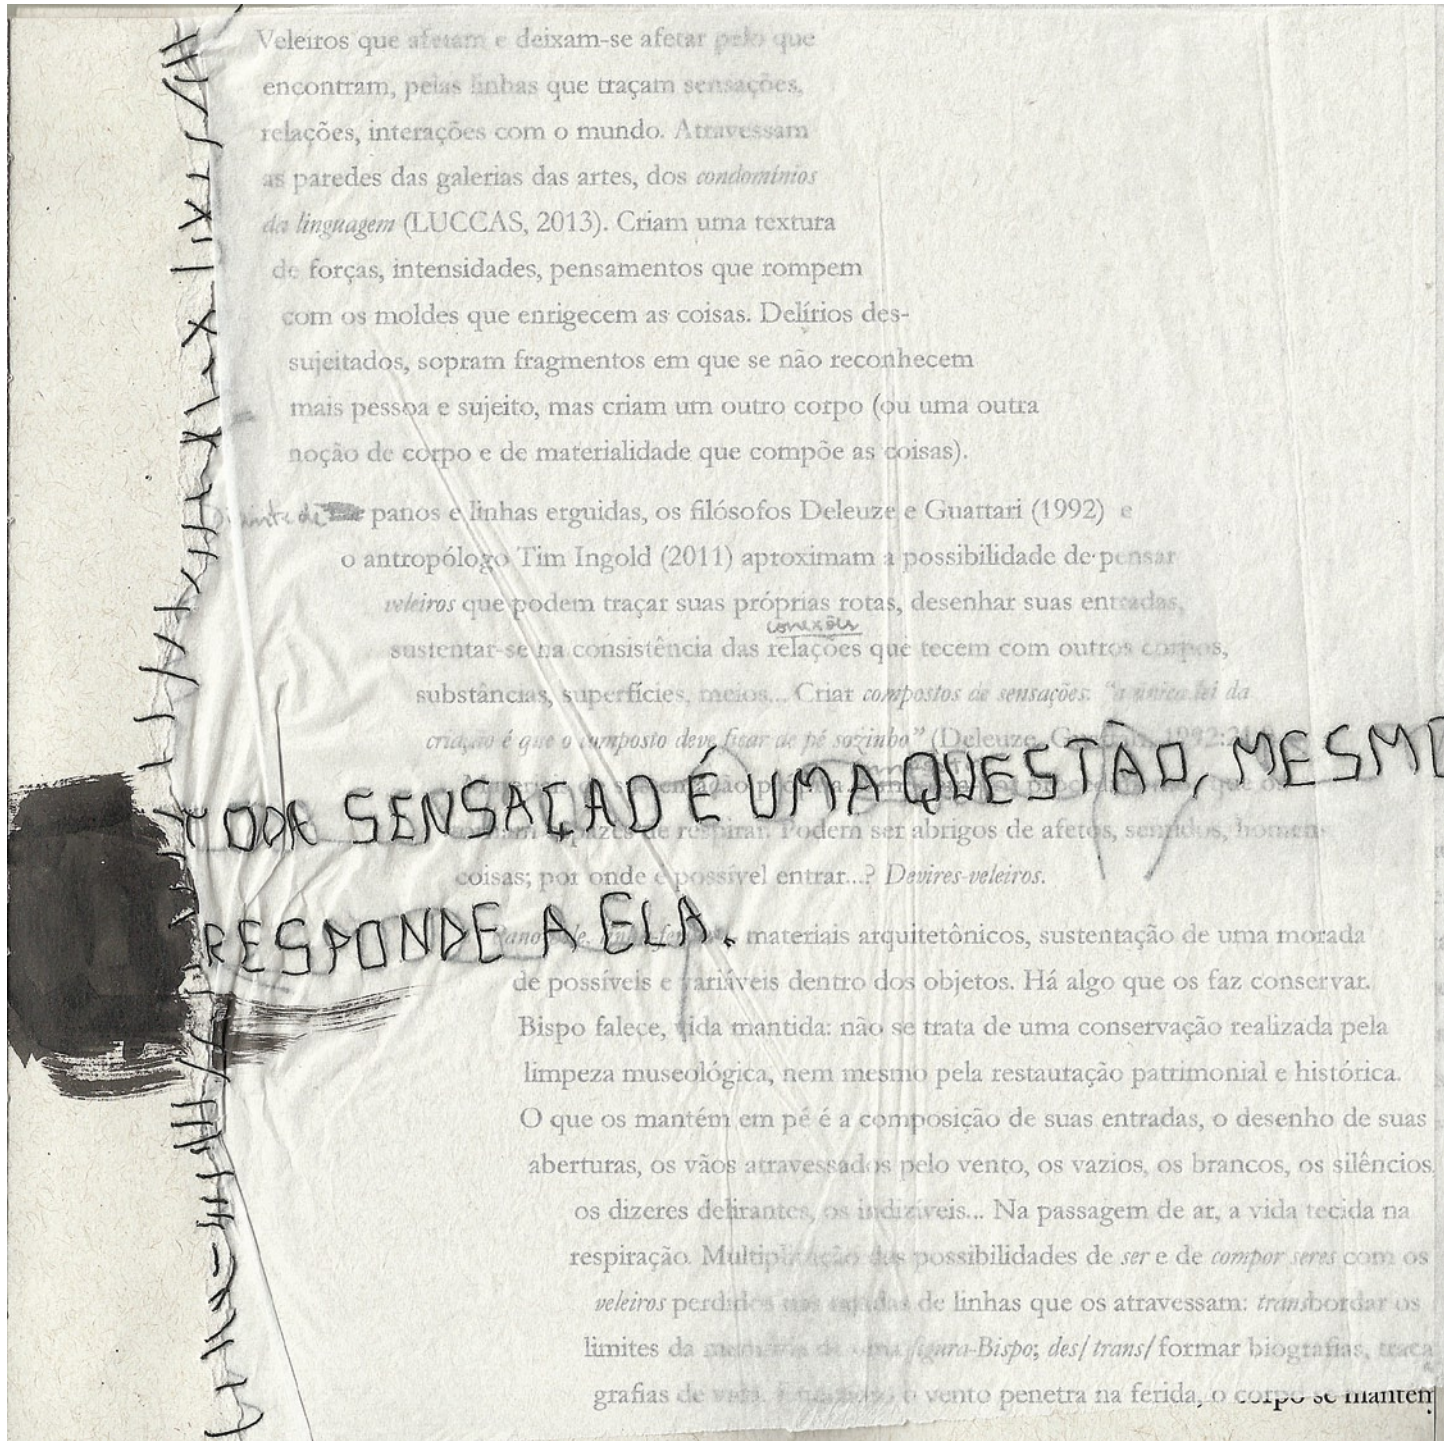 Veleiros que afetam e deixam-se afetar pelo que
encontram, pelas linhas que traçam sensações,
relações, interações com o mundo. Atravessam
as paredes das galerias das artes, dos condomínios
da linguagem (LUCCAS, 2013). Criam uma textura
de forças, intensidades, pensamentos que rompem
com os moldes que enrigecem as coisas. Delírios des-
sujeitados, sopram fragmentos em que se não reconhecem
mais pessoa e sujeito, mas criam um outro corpo (ou uma outra
noção de corpo e de materialidade que compõe as coisas).
Diante de panos e linhas erguidas, os filósofos Deleuze e Guattari (1992) e
o antropólogo Tim Ingold (2011) aproximam a possibilidade de pensar
veleiros que podem traçar suas próprias rotas, desenhar suas entradas,
conexões
sustentar-se na consistência das relações que tecem com outros corpos,
substâncias, superfícies, meios... Criar compostos de sensações: "a única lei da
criação é que o composto deve ficar de pé sozinho" (Deleuze, Guattari, 1992:
TODA SENSAÇÃO É UMA QUESTÃO, MESMO
de respirar. Podem ser abrigos de afetos, sentidos, homens
coisas; por onde é possível entrar...? Devires-veleiros.
RESPONDE A ELA.
materiais arquitetônicos, sustentação de uma morada
de possíveis e variáveis dentro dos objetos. Há algo que os faz conservar.
Bispo falece, vida mantida: não se trata de uma conservação realizada pela
limpeza museológica, nem mesmo pela restautação patrimonial e histórica.
O que os mantém em pé é a composição de suas entradas, o desenho de suas
aberturas, os vãos atravessados pelo vento, os vazios, os brancos, os silêncios,
os dizeres delirantes, os indizíveis... Na passagem de ar, a vida tecida na
respiração. Multiplicação das possibilidades de ser e de compor seres com os
veleiros perdidos nas de linhas que os atravessam: transbordar os
limites da figura-Bispo; des/trans/formar biografias, traça
grafias de o vento penetra na ferida, o corpo se mantém